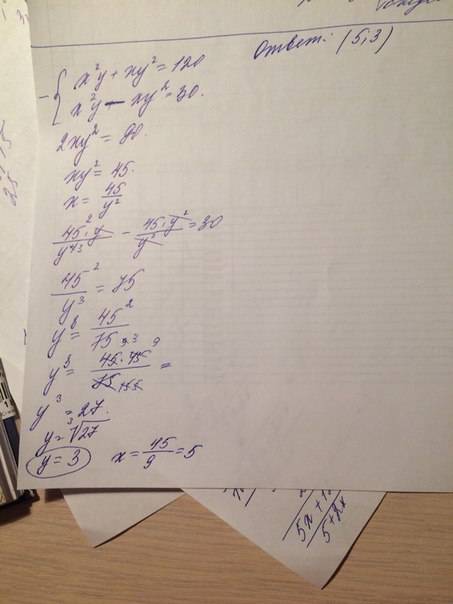 Ответ: (5,3)
- { x²y + xy² = 120
x²y - xy² = 30.
2xy² = 90.
xy² = 45.
x = 45/y²
45²·y/y⁴³ - 45·y²/y² = 30
45²/y³ = 75
y³ = 45²/75
y³ = 45·45/75 =
y³ = 27.
y = ³√27
y = 3 x = 45/9 = 5
5x+1
5+2x